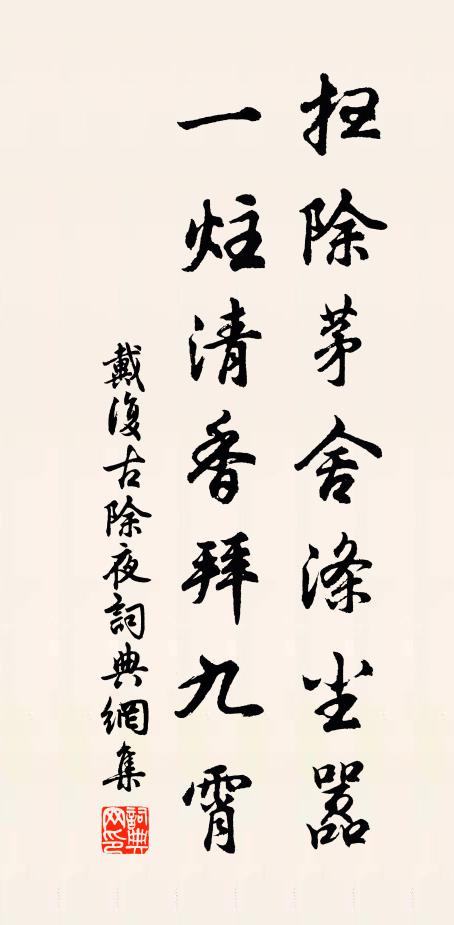 扫除茅舍涤尘嚣
一炷清香拜九霄
戴復古除夜詞典網集
詞典网印